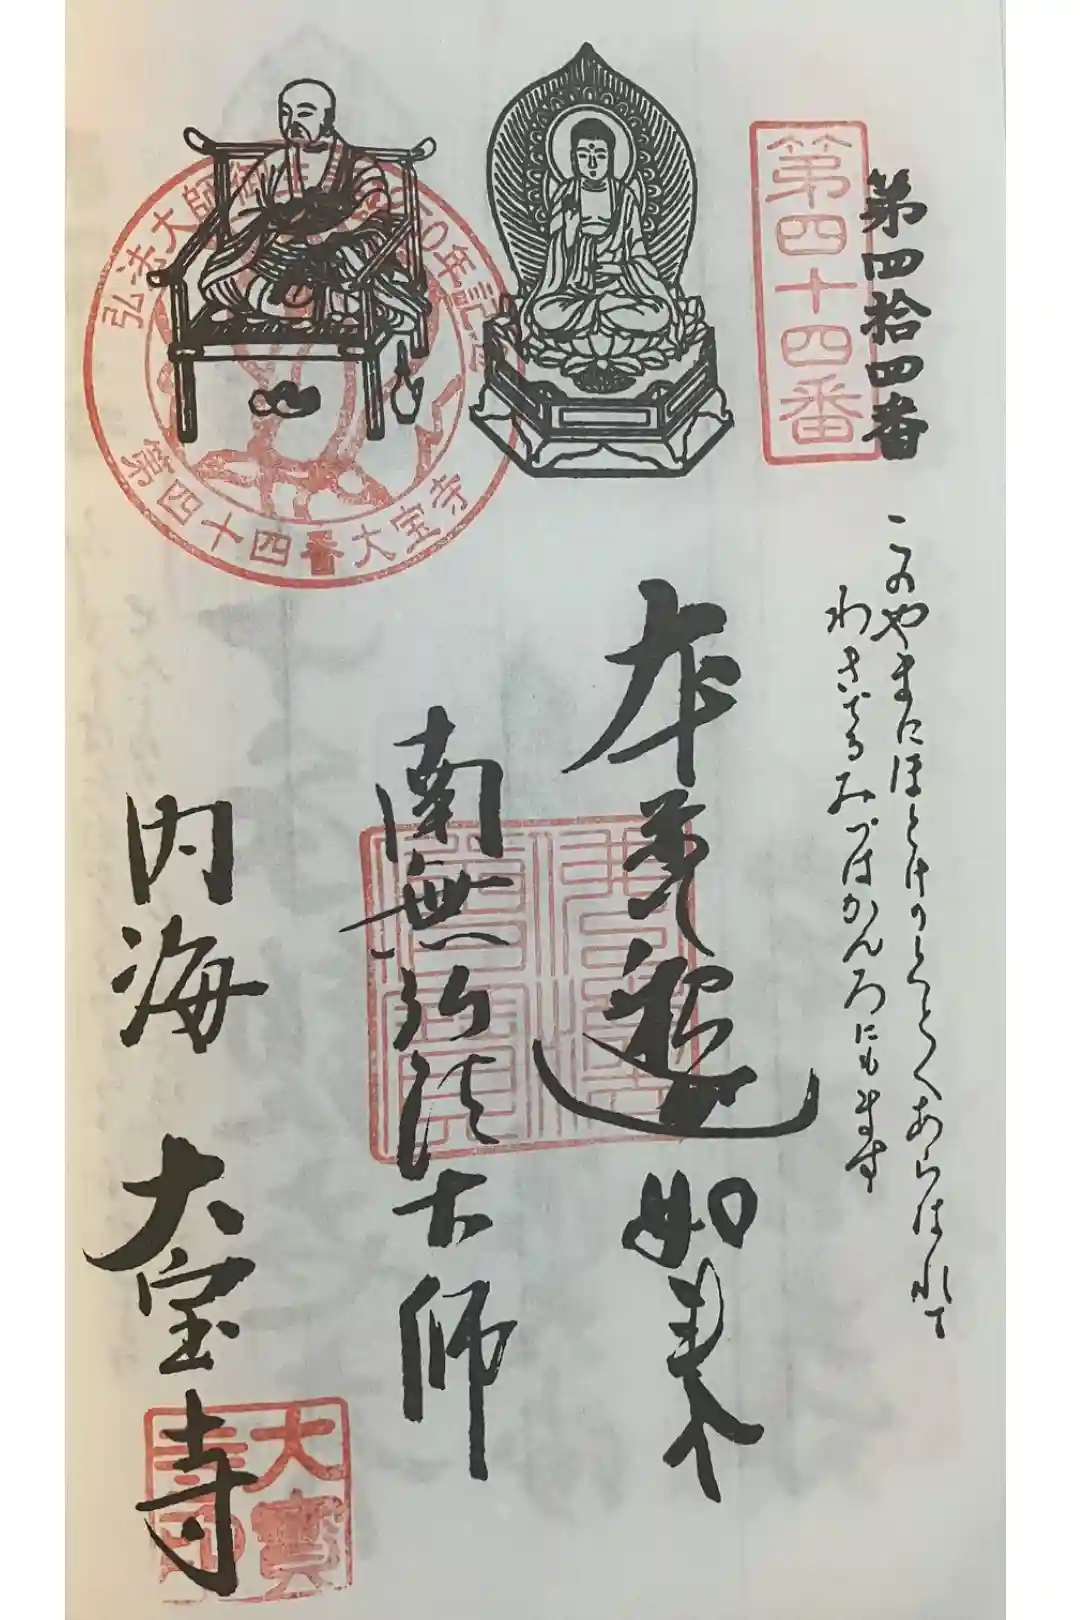 第四十四番
第四拾四番
このやまにほとけのとくとくあらはれて
わきでるみづはかんろにもます
本尊釈迦如来
南無弘法大師
内海 大宝寺
弘法大師御生誕1250年記念
第四十四番大宝寺
大寶寺印